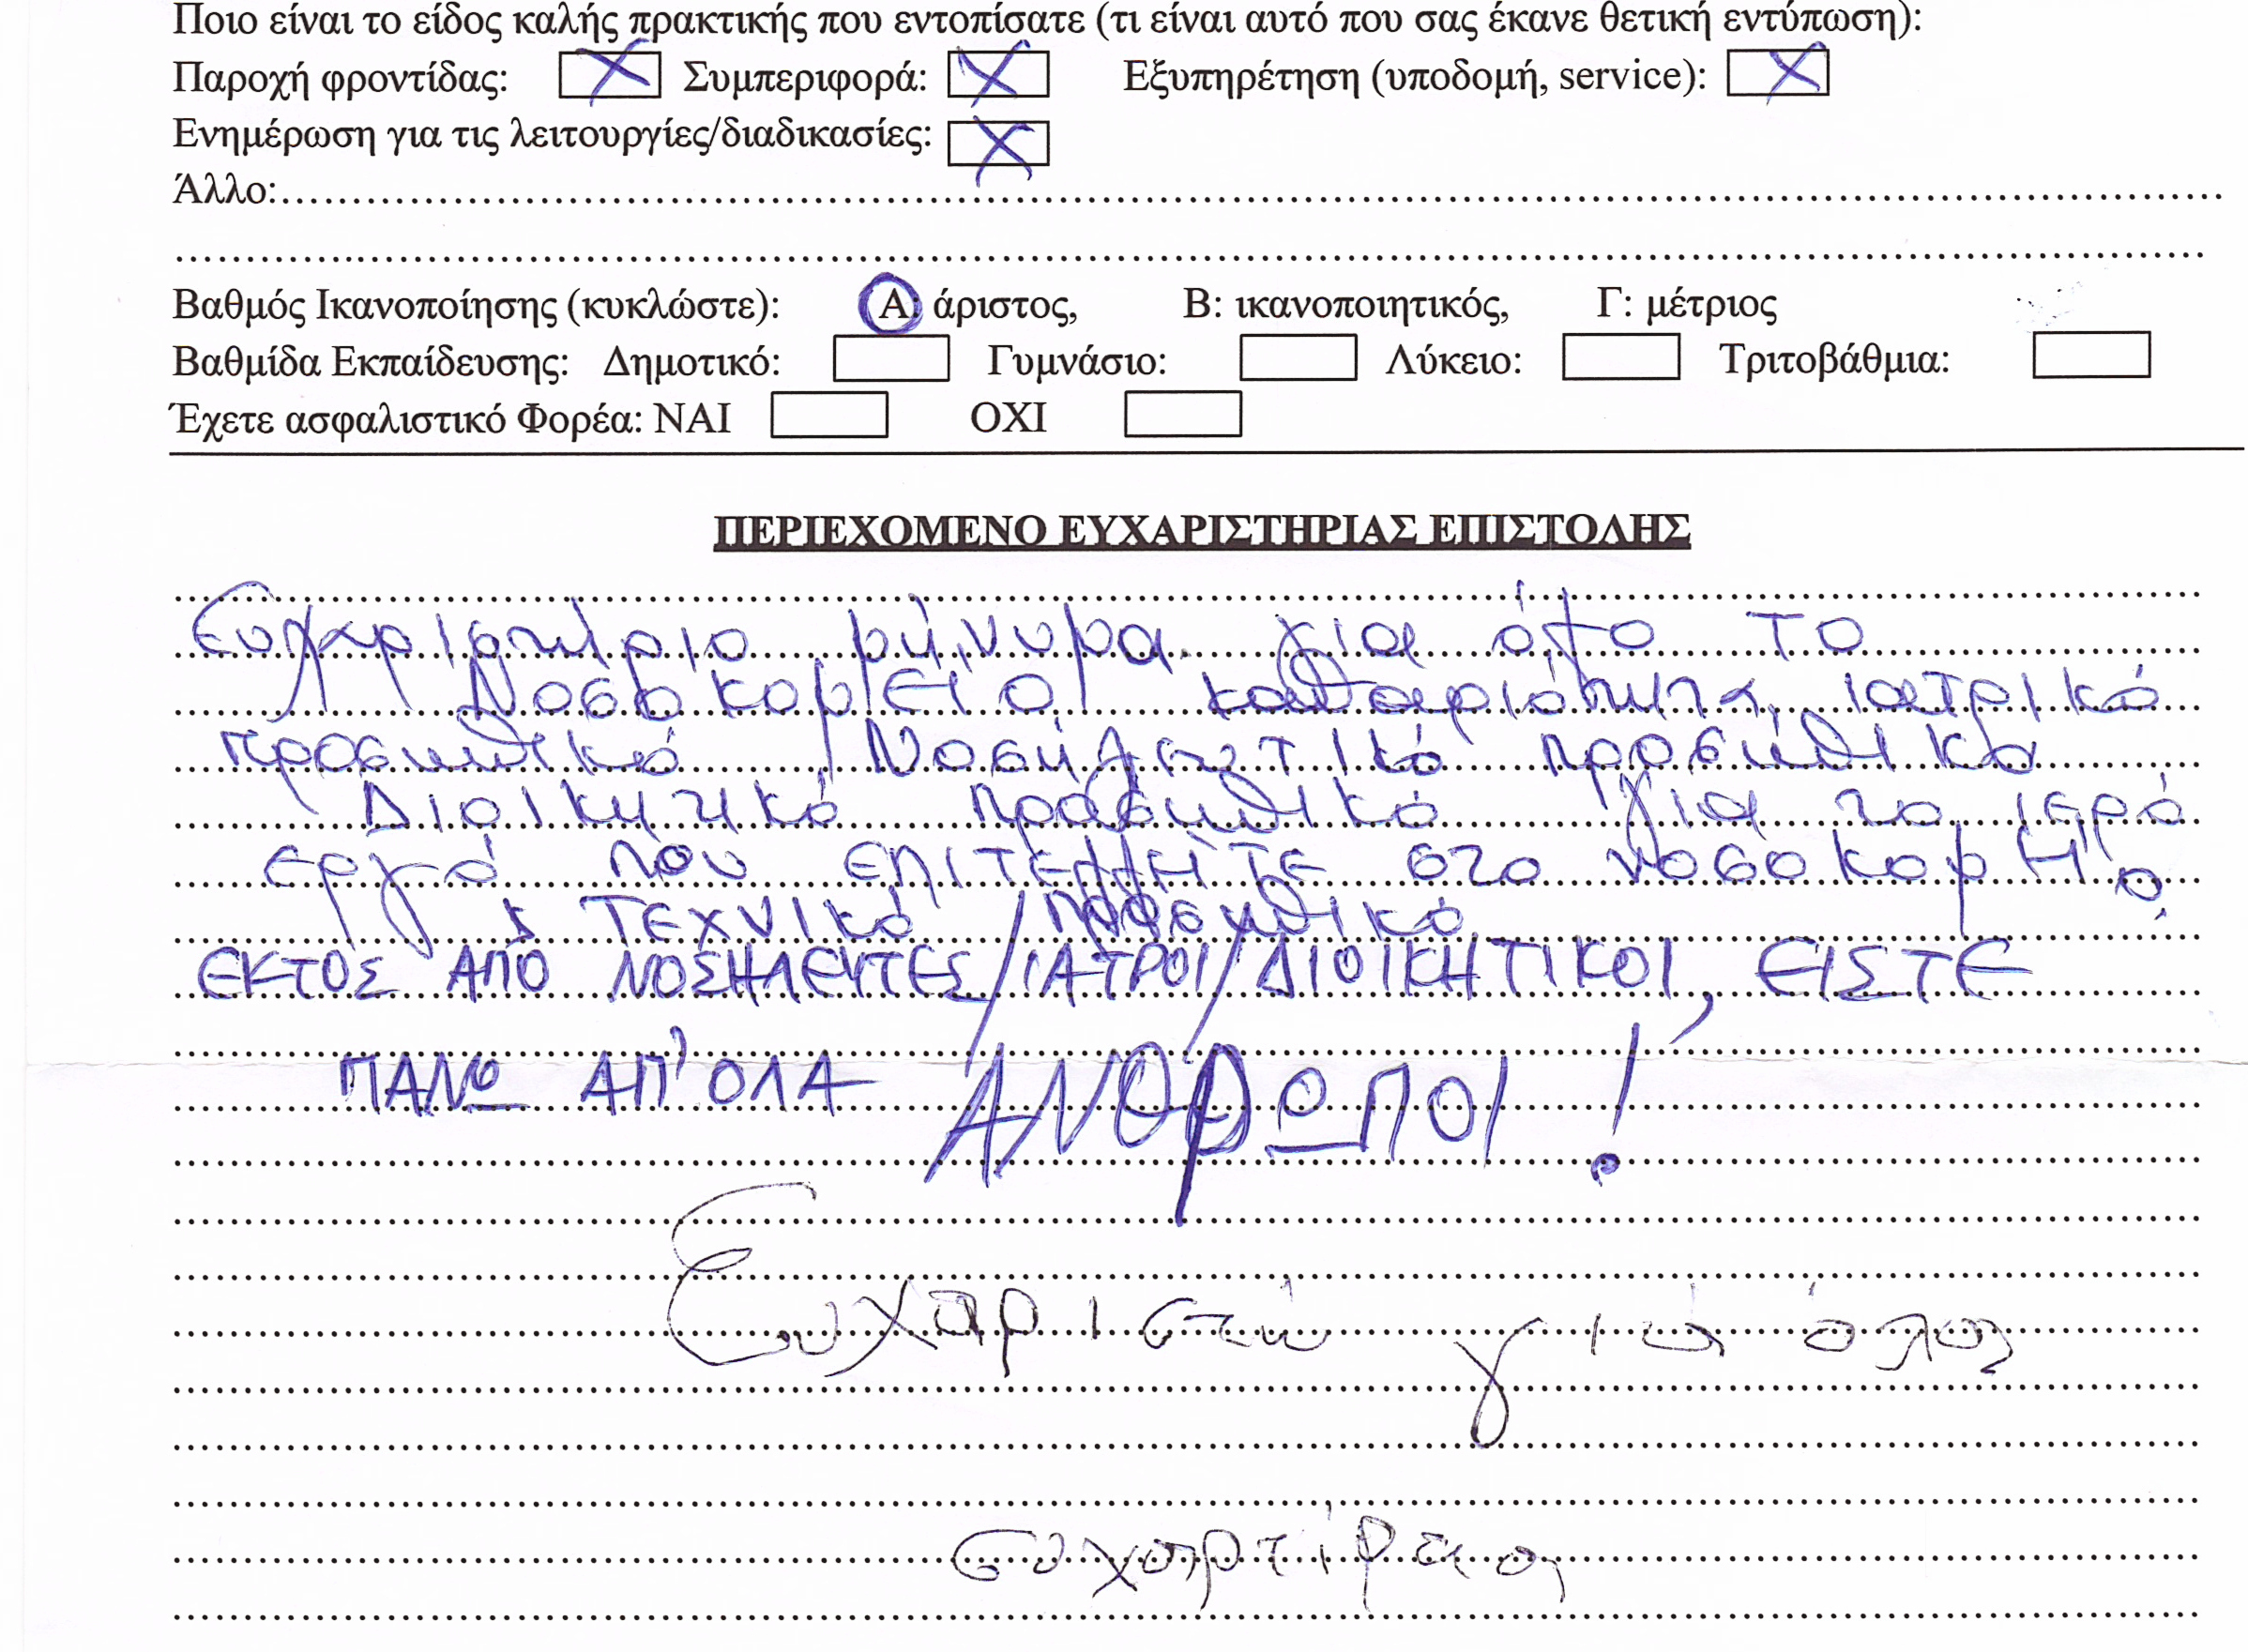 Ποιο είναι το είδος καλής πρακτικής που εντοπίσατε (τι είναι αυτό που σας έκανε θετική εντύπωση):
Παροχή φροντίδας: X Συμπεριφορά: X Εξυπηρέτηση (υποδομή, service): X
Ενημέρωση για τις λειτουργίες/διαδικασίες: X
Άλλο:
Βαθμός Ικανοποίησης (κυκλώστε): Α: άριστος, Β: ικανοποιητικός, Γ: μέτριος
Βαθμίδα Εκπαίδευσης: Δημοτικό: Γυμνάσιο: Λύκειο: Τριτοβάθμια:
Έχετε ασφαλιστικό Φορέα: ΝΑΙ ΟΧΙ
ΠΕΡΙΕΧΟΜΕΝΟ ΕΥΧΑΡΙΣΤΗΡΙΑΣ ΕΠΙΣΤΟΛΗΣ
Ευχαριστήριο μήνυμα για όλο το
Νοσοκομείο καθαριότητα, ιατρικό
προσωπικό, Νοσηλευτικό προσώπικο
Διοικητικό προσωπικό για το ιερό
εργό που επιτελείτε στο νοσοκομείο
τεχνικό προσωπικό
ΕΚΤΟΣ ΑΠΟ ΝΟΣΗΛΕΥΤΕΣ/ΙΑΤΡΟΙ/ΔΙΟΙΚΗΤΙΚΟΙ, ΕΙΣΤΕ
ΠΑΝΩ ΑΠ' ΟΛΑ ΑΝΘΡΩΠΟΙ!
Ευχαριστώ για όλα